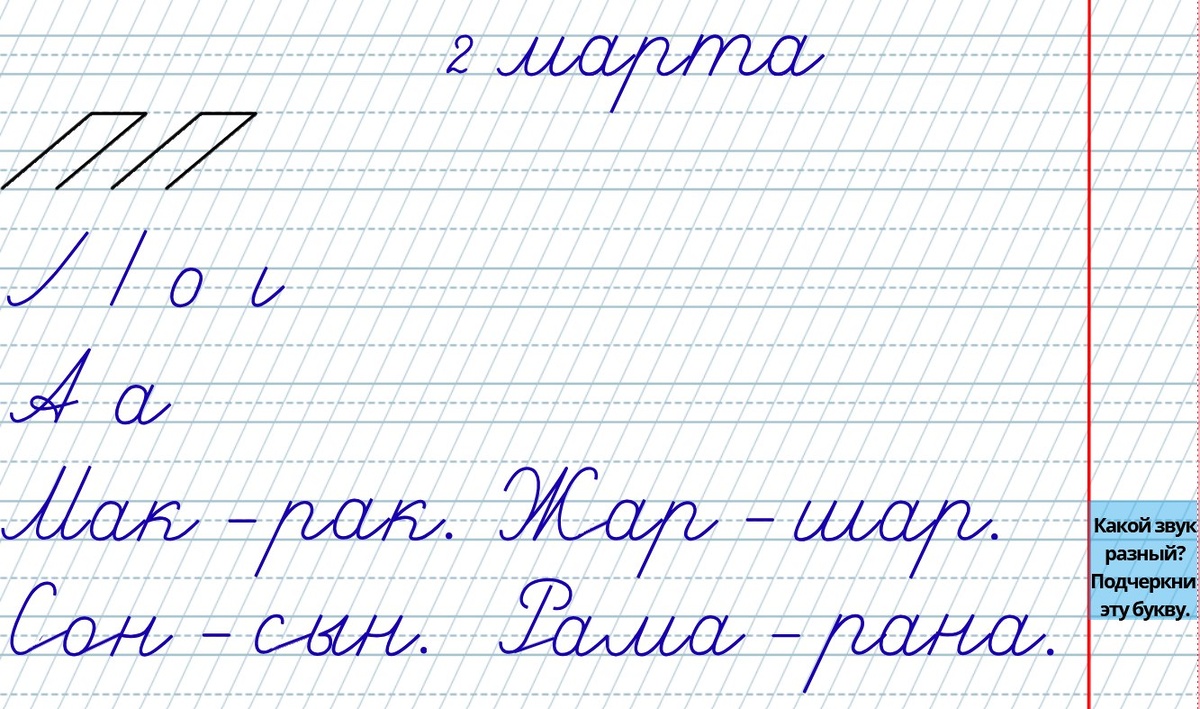 2 марта
А а
Мак - рак. Жар - шар.
Сон - сын. Рама - рана.
Какой звук
разный?
Подчеркни
эту букву.